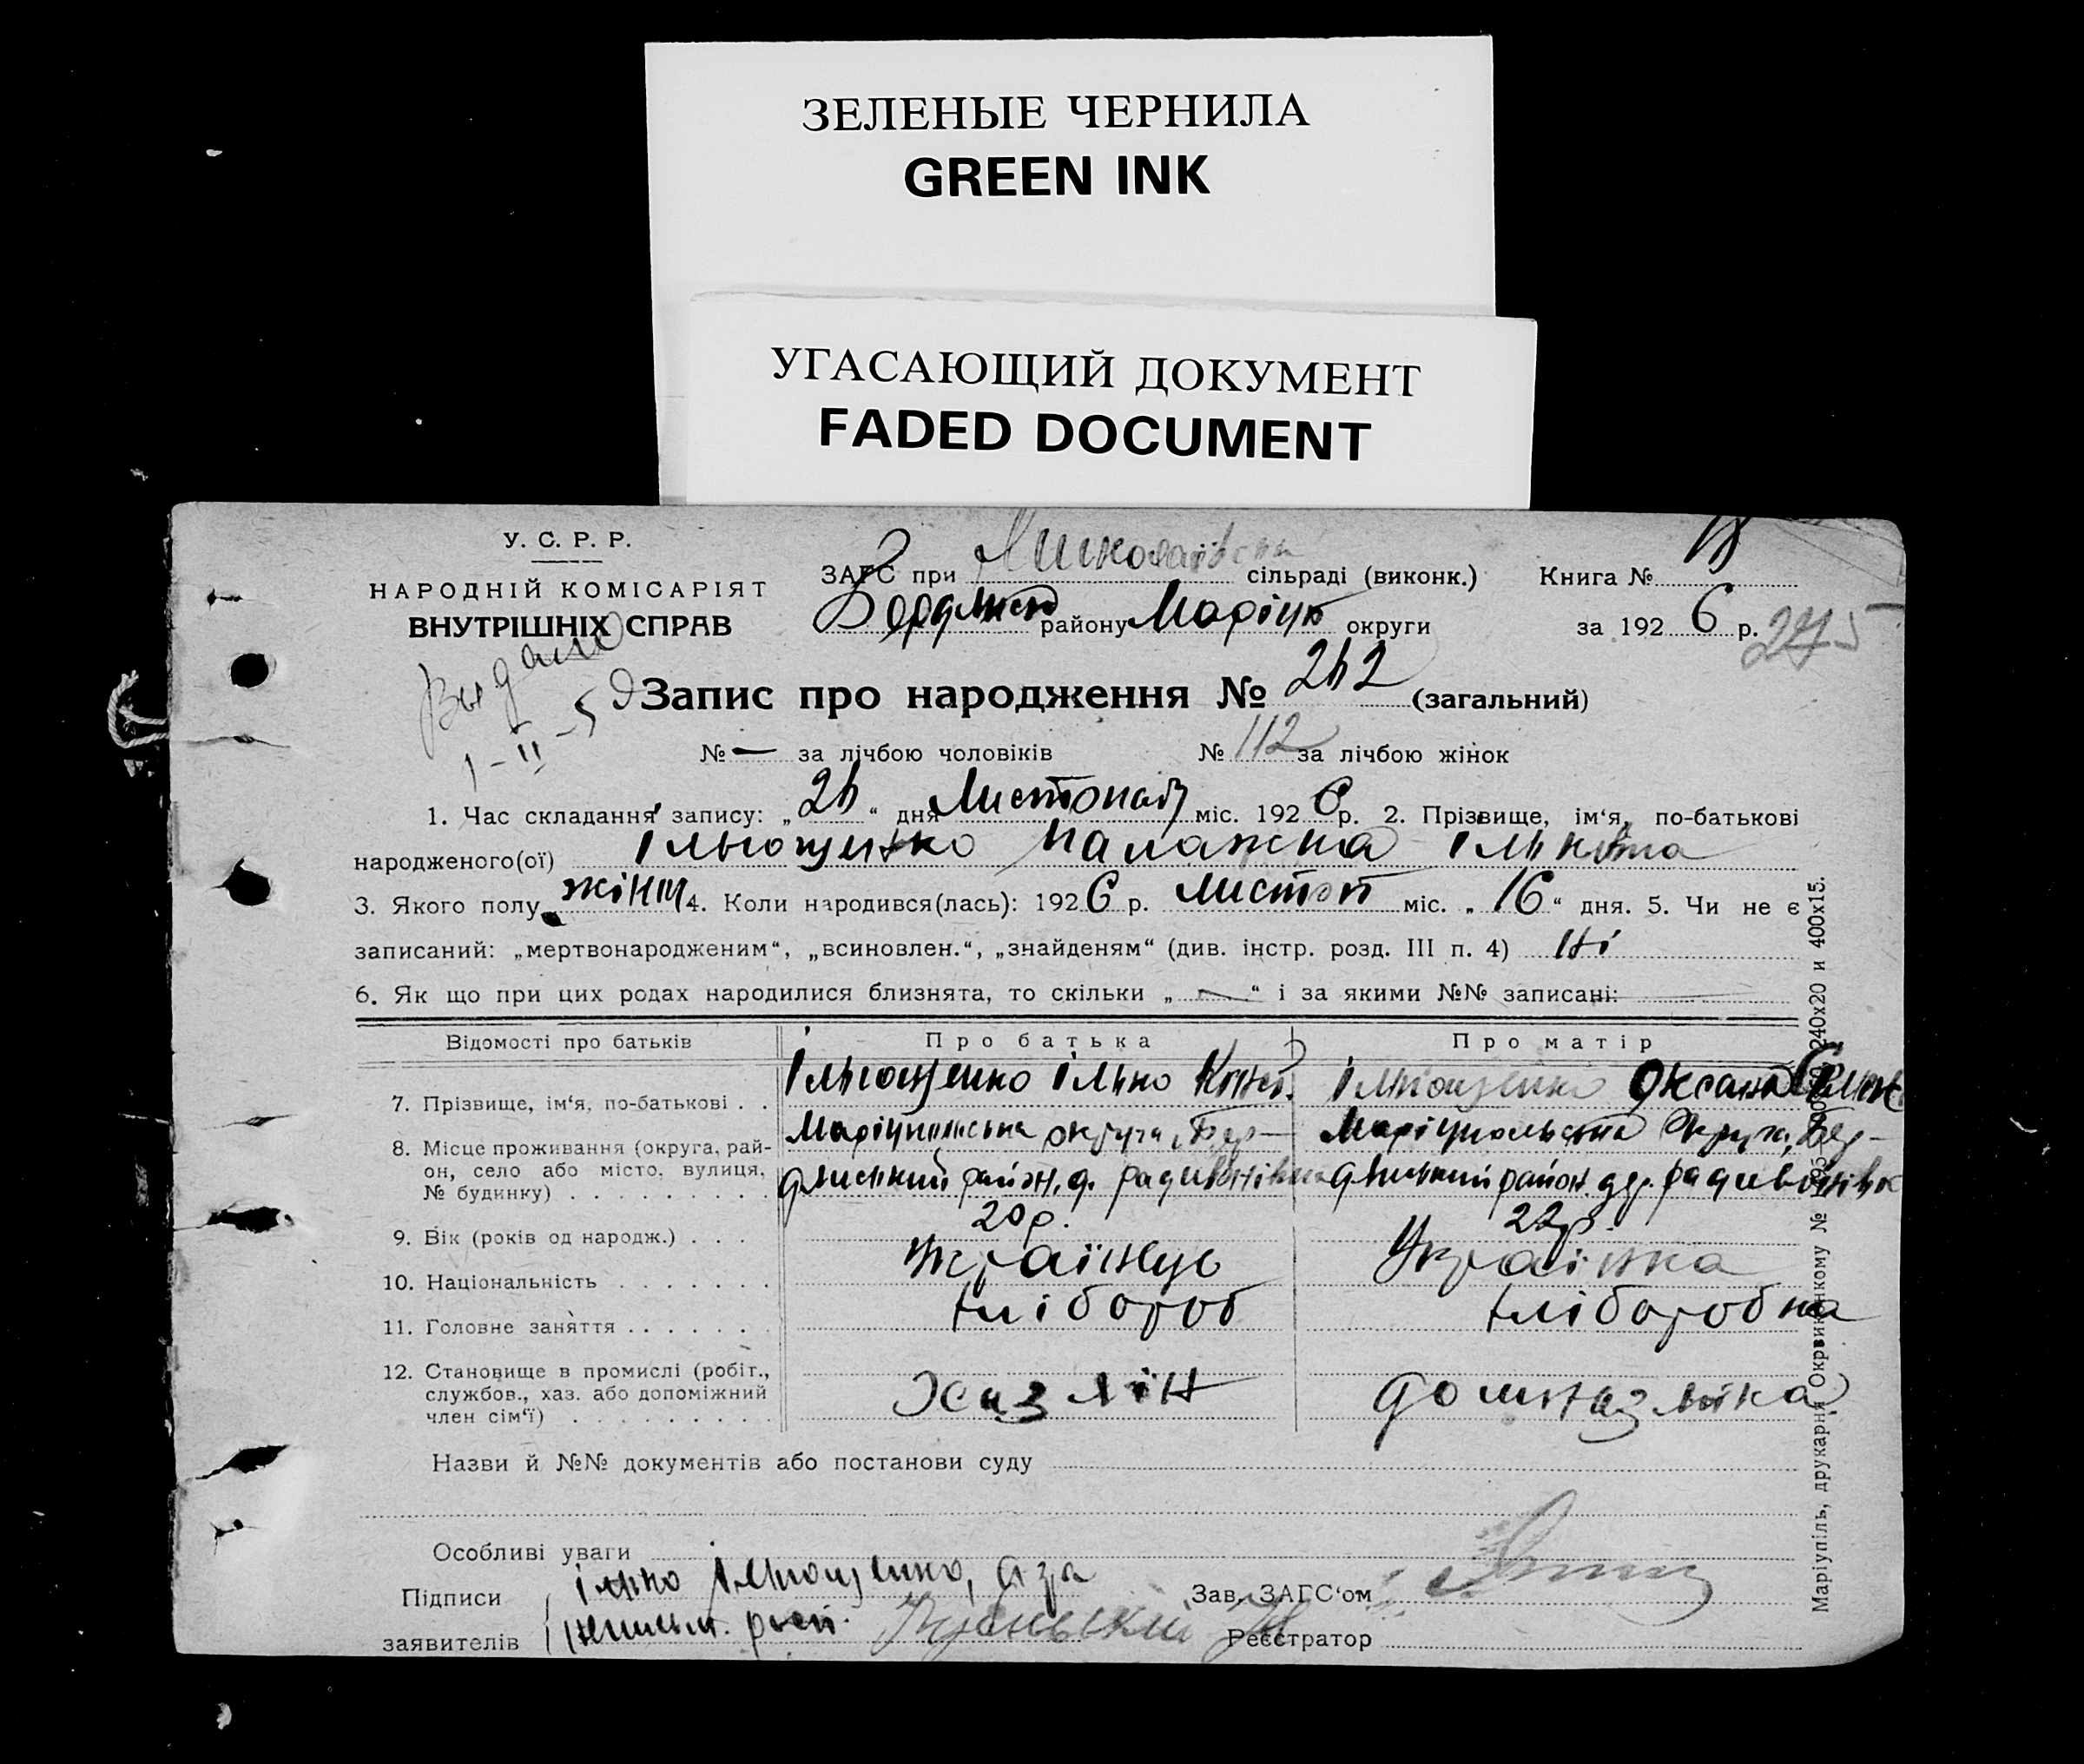 ЗЕЛЕНЫЕ ЧЕРНИЛА
GREEN INK
УГАСАЮЩИЙ ДОКУМЕНТ
FADED DOCUMENT
У. С. Р. Р.
НАРОДНІЙ КОМІСАРІЯТ
ВНУТРІШНІХ СПРАВ
ЗАГС при сільраді (виконк.) Книга №
району Маріуп округи за 1926 р. 275
Запис про народження № 242 (загальний)
№ — за лічбою чоловіків № 112 за лічбою жінок
1. Час складання запису: „24“ дня Листопад міс. 1926 р. 2. Прізвище, ім‘я, по-батькові
народженого(ої) Ільющенко Палажка Ільківна
3. Якого полу жіноч 4. Коли народився(лась): 1926 р. листоп міс. „16“ дня. 5. Чи не є
записаний: „мертвонародженим“, „всиновлен.“, „знайденям“ (див. інстр. розд. III п. 4) Ні
6. Як що при цих родах народилися близнята, то скільки „—“ і за якими №№ записані:
Відомості про батьків Про батька Про матір
7. Прізвище, ім‘я, по-батькові . . Ільющенко Ілько Ільющенко Оксана
8. Місце проживання (округа, рай- Маріупільська округи, Бер- Маріупольська Округи, Бер-
он, село або місто, вулиця, дянський район, д. Радивонівка дянський район. дер. Радивонівка
№ будинку)
9. Вік (років од народж.) . . . 20 р. 22 р.
10. Національність Українец Українка
11. Головне заняття хлібороб хлібороб ка
12. Становище в промислі (робіт.,
службов., хаз. або допоміжний Хазяїн домхазяйка
член сім‘ї)
Назви й №№ документів або постанови суду
Особливі уваги
Підписи Ілько Ільющенко, а за Зав. ЗАГС‘ом
заявителів неписьм. Реєстратор
Маріупіль, друкарня Окрвиконкому № 240x20 и 400x15.